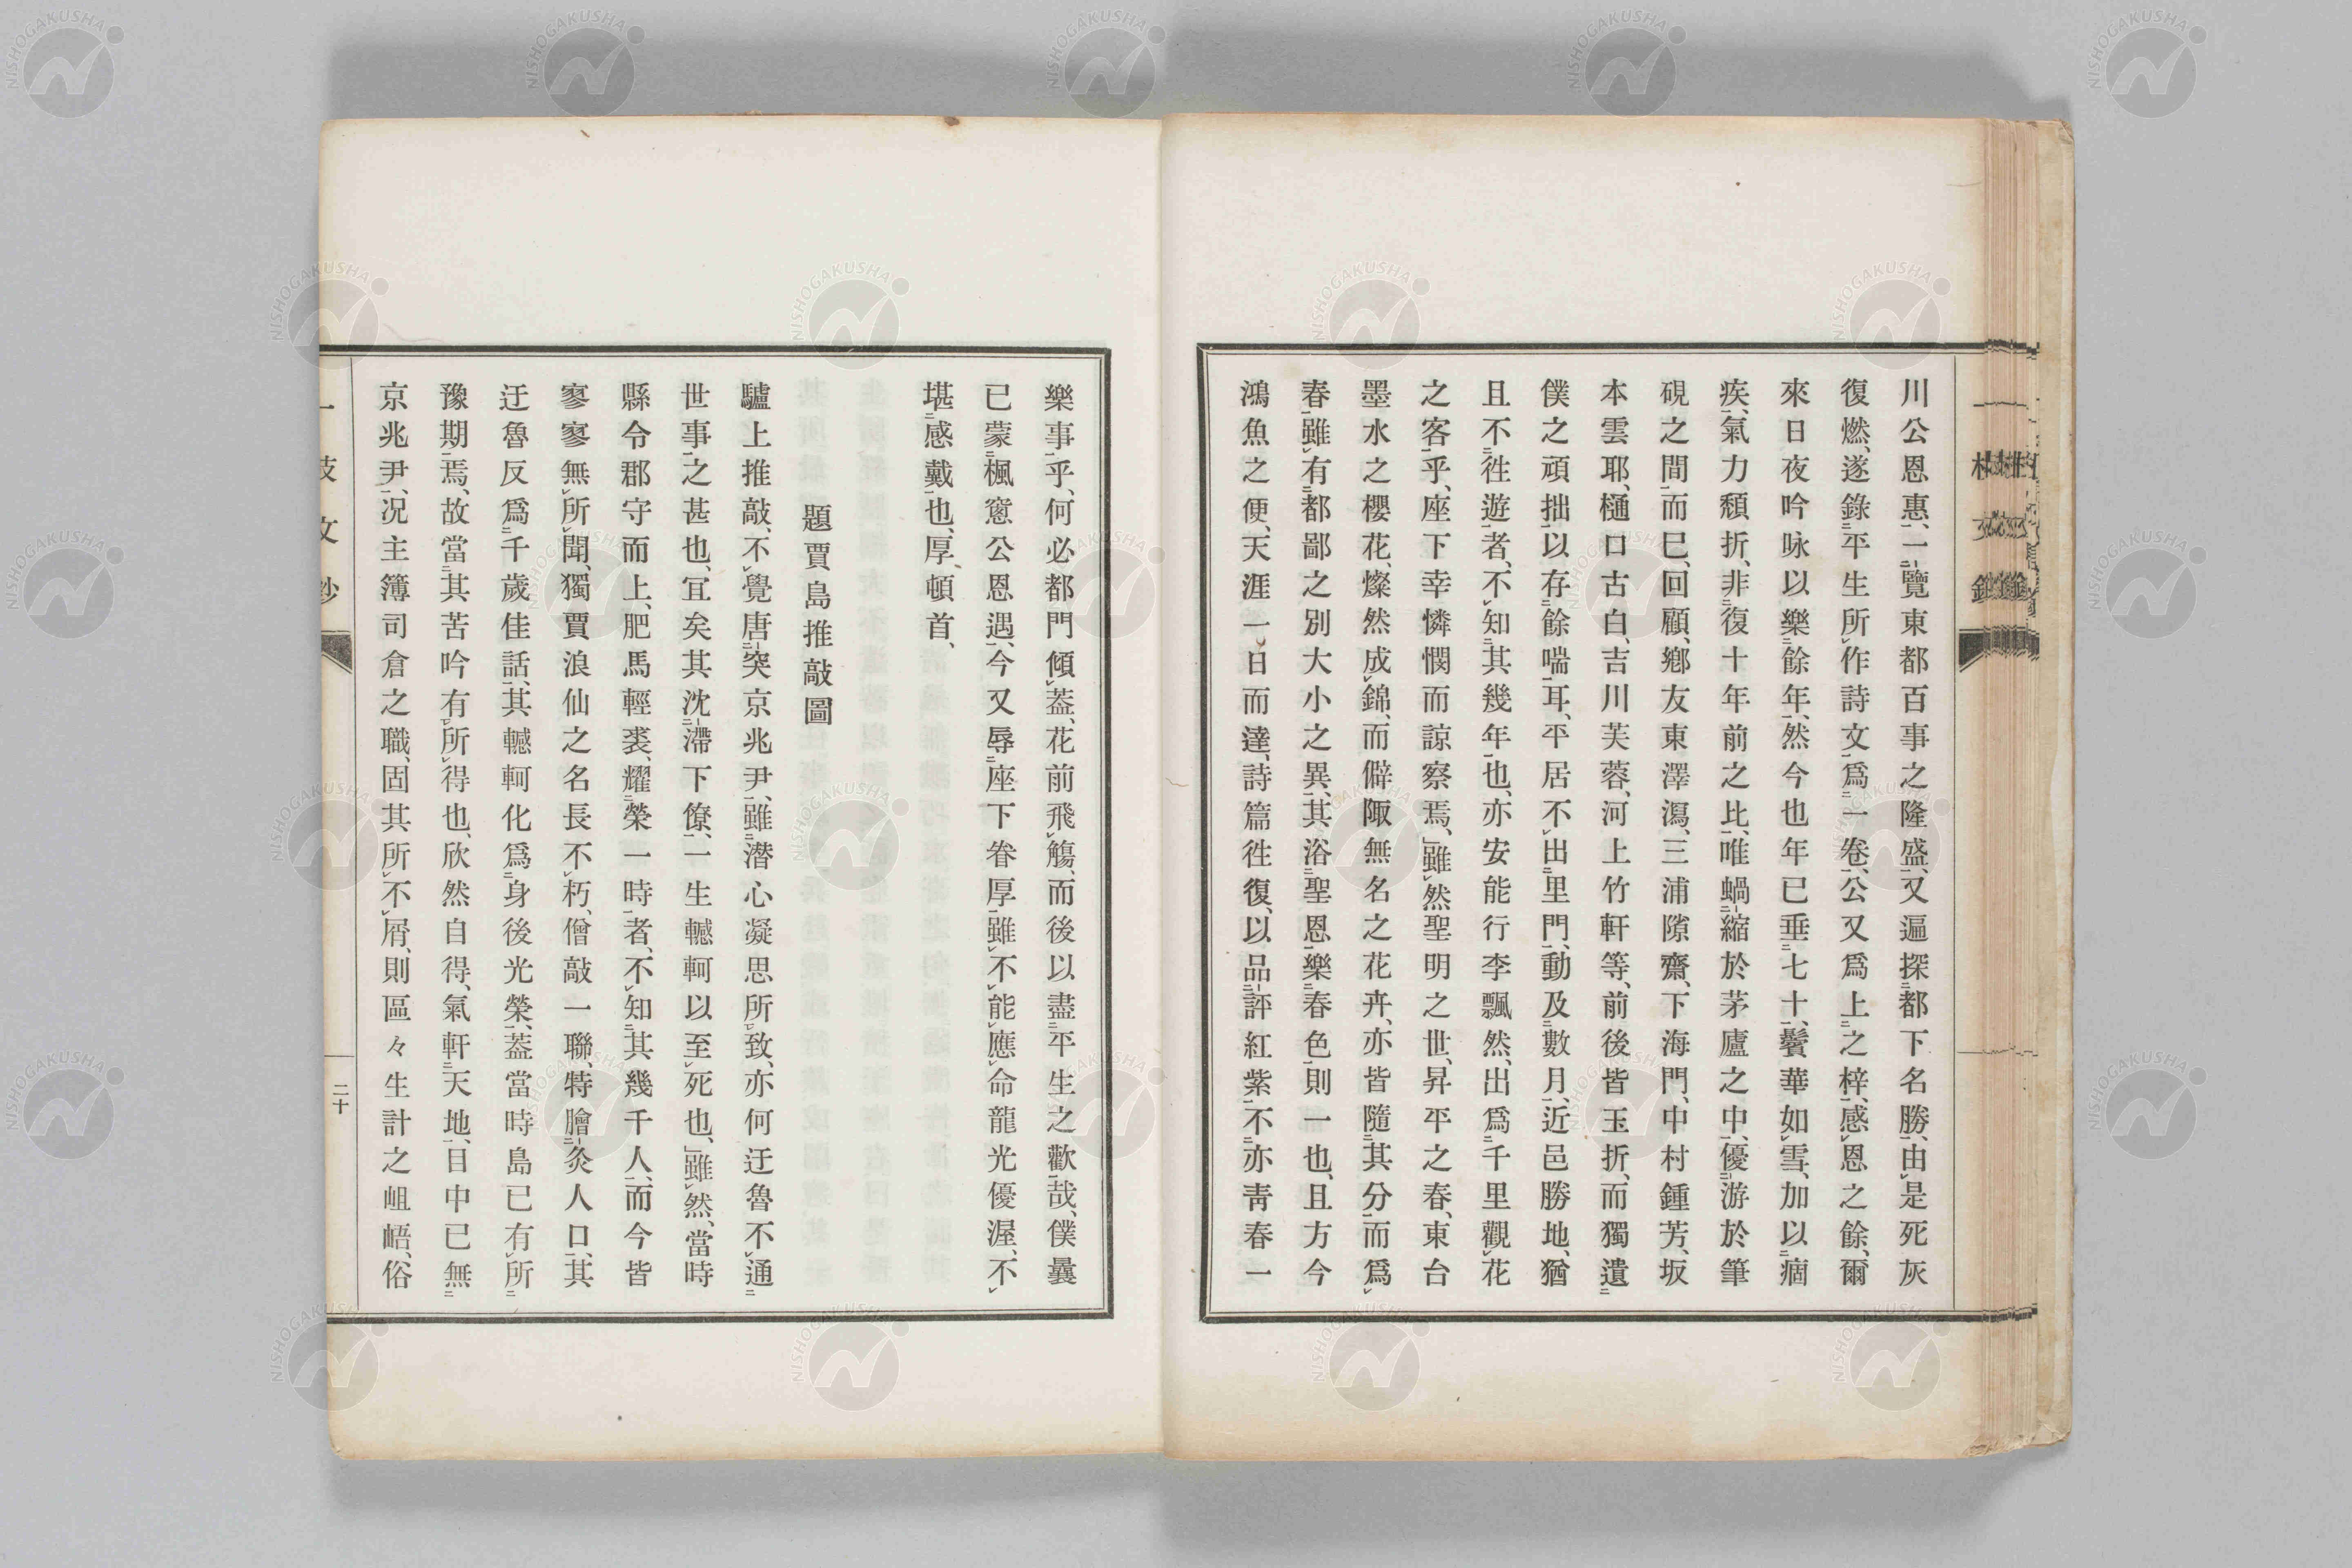 川公恩惠、一覽東都百事之隆盛、又遍探都下名勝、由是死灰
復燃、遂錄平生所作詩文、爲一卷、公又爲上之梓、感恩之餘、爾
來日夜吟咏以樂餘年、然今也年已垂七十、鬢華如雪、加以痼
疾、氣力頽折、非復十年前之比、唯蝸縮於茅廬之中、優游於筆
硯之間而已、回顧鄕友東澤瀉、三浦隙齋、下海門、中村鍾芳、坂
本雲耶、樋口古白、吉川芙蓉、河上竹軒等、前後皆玉折、而獨遺
僕之頑拙、以存餘喘耳、平居不出里門、動及數月、近邑勝地、猶
且不徃遊者、不知其幾年也、亦安能行李飄然、出爲千里觀花
之客乎、座下幸憐憫而諒察焉、雖然聖明之世、昇平之春、東台
墨水之櫻花、燦然成錦、而僻陬無名之花卉、亦皆隨其分而爲
春、雖有都鄙之別大小之異、其浴聖恩樂春色、則一也、且方今
鴻魚之便、天涯一日而達、詩篇徃復、以品評紅紫、不亦靑春一
樂事乎、何必都門傾葢、花前飛觴、而後以盡平生之歡哉、僕曩
已蒙楓窻公恩遇、今又辱座下眷厚、雖不能應命龍光優渥、不
堪感戴也、厚頓首、
題賈島推敲圖
驢上推敲、不覺唐突京兆尹、雖潛心凝思所致、亦何迂魯不通
世事之甚也、宜矣其沈滯下僚、一生轗軻以至死也、雖然、當時
縣令郡守而上、肥馬輕裘、耀榮一時者、不知其幾千人、而今皆
寥寥無所聞、獨賈浪仙之名長不朽、僧敲一聯、特膾灸人口、其
迂魯反爲千歲佳話、其轗軻化爲身後光榮、葢當時島已有所
豫期焉、故當其苦吟有所得也、欣然自得、氣軒天地、目中已無
京兆尹、况主簿司倉之職、固其所不屑、則區々生計之岨峿、俗
二十
NISHOGAKUSHA